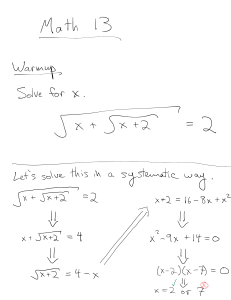 Math 13
Warmup.
Solve for x.
√(x + √(x+2)) = 2
Let's solve this in a systematic way.
√(x + √(x+2)) = 2
⇓
x + √(x+2) = 4
⇓
√(x+2) = 4 - x
⇒
x+2 = 16 - 8x + x²
⇓
x² - 9x + 14 = 0
⇓
(x-2)(x-7) = 0
⇓
x = 2 or 7